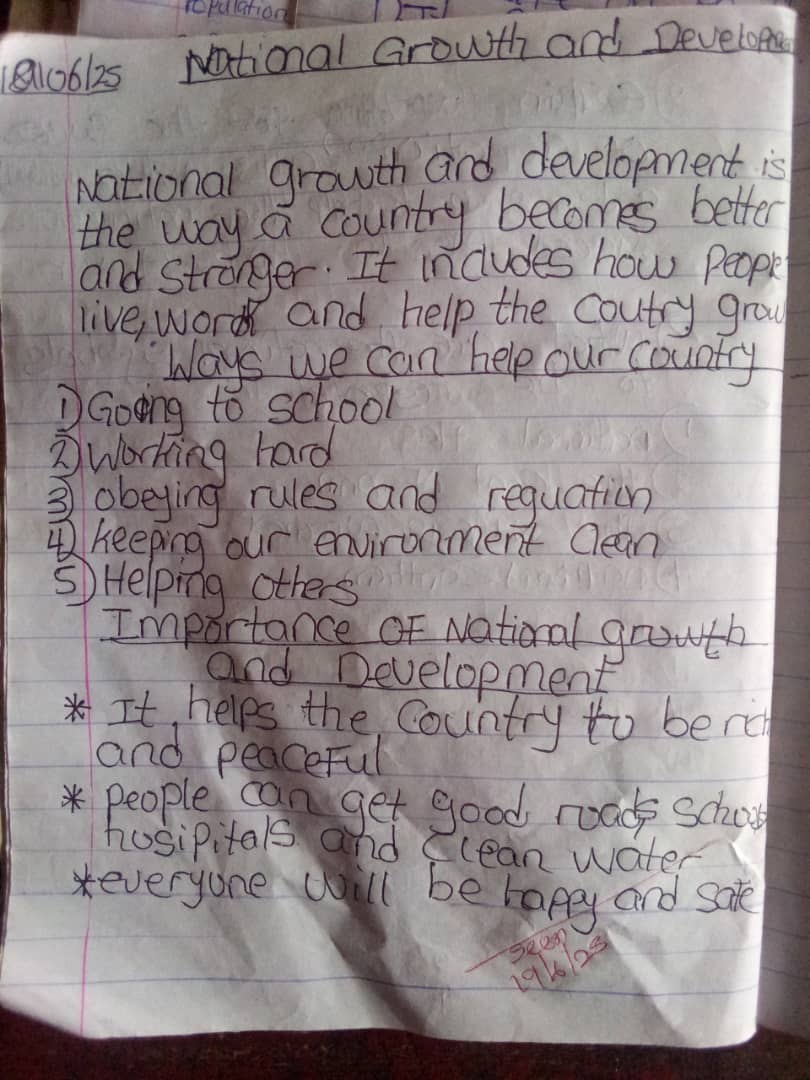 Population
18/06/25 National Growth and Developmen
National growth and development is
the way a country becomes better
and Stronger. It includes how People
live, work and help the Coutry grow
Ways we can help our Country
1) Going to school
2) Working hard
3) obeying rules and reguation
4) keeping our environment Clean
5) Helping others
Importance OF National growth
and Development
* It helps the Country to be rich
and peaceful
* people can get good roads schools
hosipitals and Clean water
* everyone will be happy and safe
seen
19/6/25